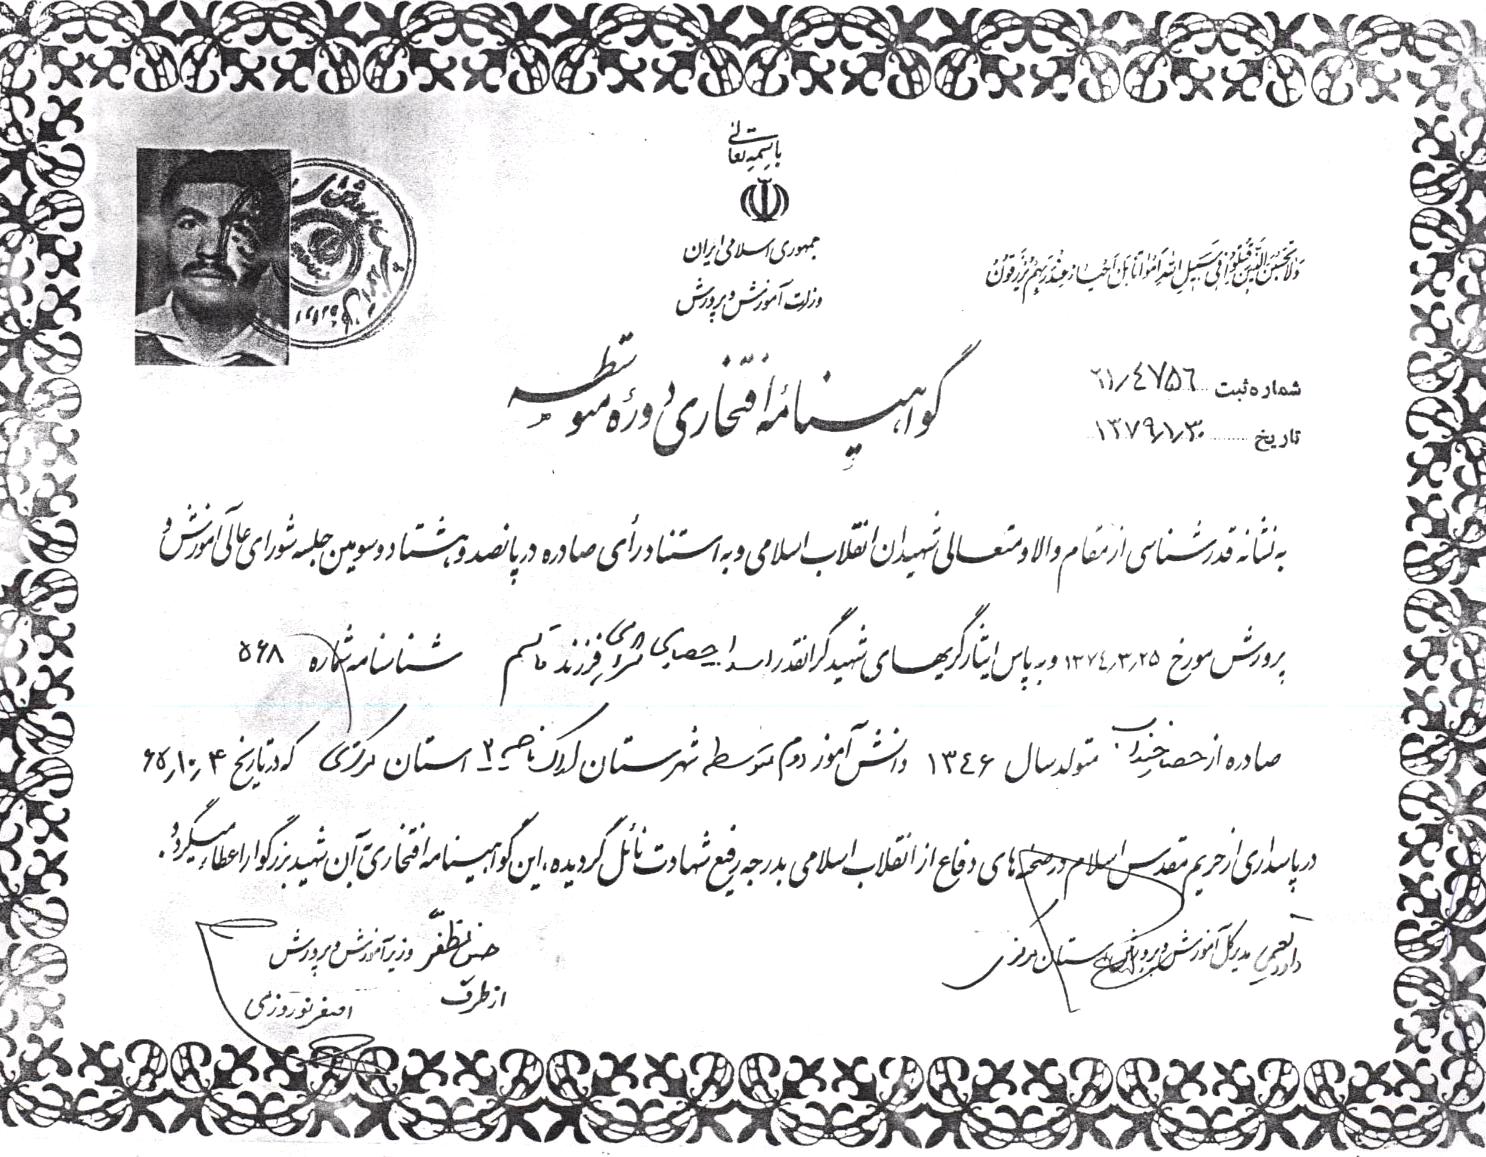 باسمه تعالی
جمهوری اسلامی ایران
وزارت آموزش و پرورش
وَلا تَحْسَبَنَّ الَّذینَ قُتِلُوا فی سَبیلِ اللهِ اَمْواتاً بَلْ اَحْیاءٌ عِنْدَ رَبِّهِمْ یُرْزَقُونَ
شماره ثبت ۶۱/۴۷۵۶
تاریخ ۱۳۷۹/۱/۳۰
گواهینامهٔ افتخاری دورهٔ متوسطه
به نشانه قدرشناسی از مقام والا و متعالی شهیدان انقلاب اسلامی و به استناد رأی صادره در پانصد و هشتاد و سومین جلسه شورای عالی آموزش و
پرورش مورخ ۱۳۷۴/۳/۲۵ و به پاس ایثارگریهای شهید گرانقدر فرزند قاسم شناسنامه شماره ۵۶۸
صادره از متولد سال ۱۳۴۶ دانش آموز دوم متوسطه شهرستان اراک ناحیه ۲ استان مرکزی که در تاریخ ۶۵/۱۰/۴
در پاسداری از حریم مقدس اسلام در صحنه های دفاع از انقلاب اسلامی بدرجه رفیع شهادت نائل گردیده، این گواهینامه افتخاری به آن شهید بزرگوار اعطاء میگردد.
مدیرکل آموزش و پرورش استان مرکزی
حسین مظفر وزیر آموزش و پرورش
از طرف اصغر نوروزی